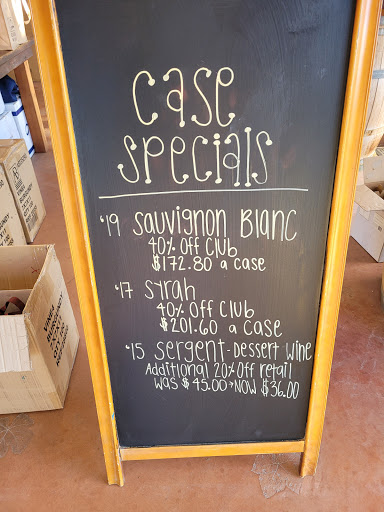 case
specials
'19 sauvignon Blanc
40% off club
$172.80 a case
'17 syrah
40% off club
$201.60 a case
'15 sergent - Dessert wine
Additional 20% off retail
was $45.00 → NOW $36.00